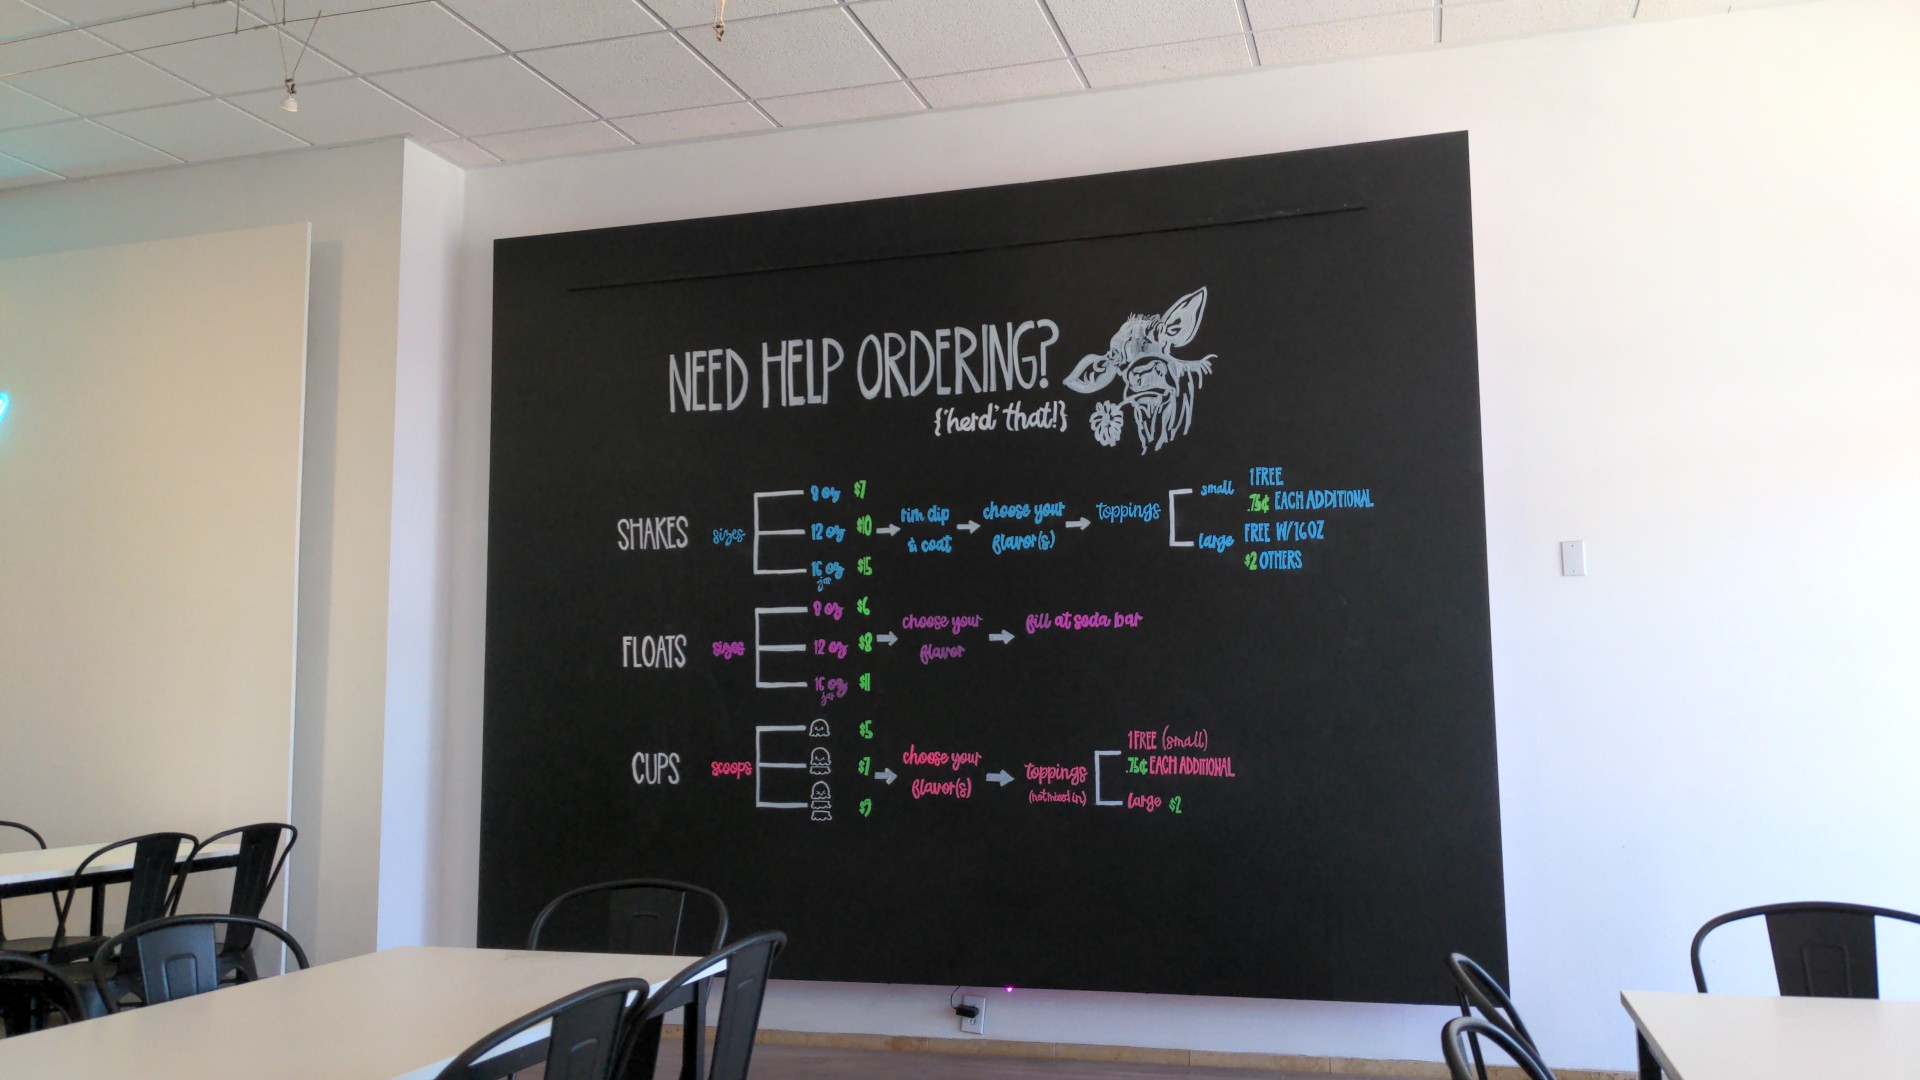 NEED HELP ORDERING?
{'herd' that!}
SHAKES sizes
8 oz $7
12 oz $10
16 oz $15
jar
rim dip
& coat
choose your
flavor(s)
toppings
small 1 FREE
.75¢ EACH ADDITIONAL
large FREE W/16OZ
$2 OTHERS
FLOATS sizes
8 oz $6
12 oz $8
16 oz $11
jar
choose your
flavor
fill at soda bar
CUPS scoops
$5
$7
$9
choose your
flavor(s)
toppings
(not mixed in)
1 FREE (small)
.75¢ EACH ADDITIONAL
large $2